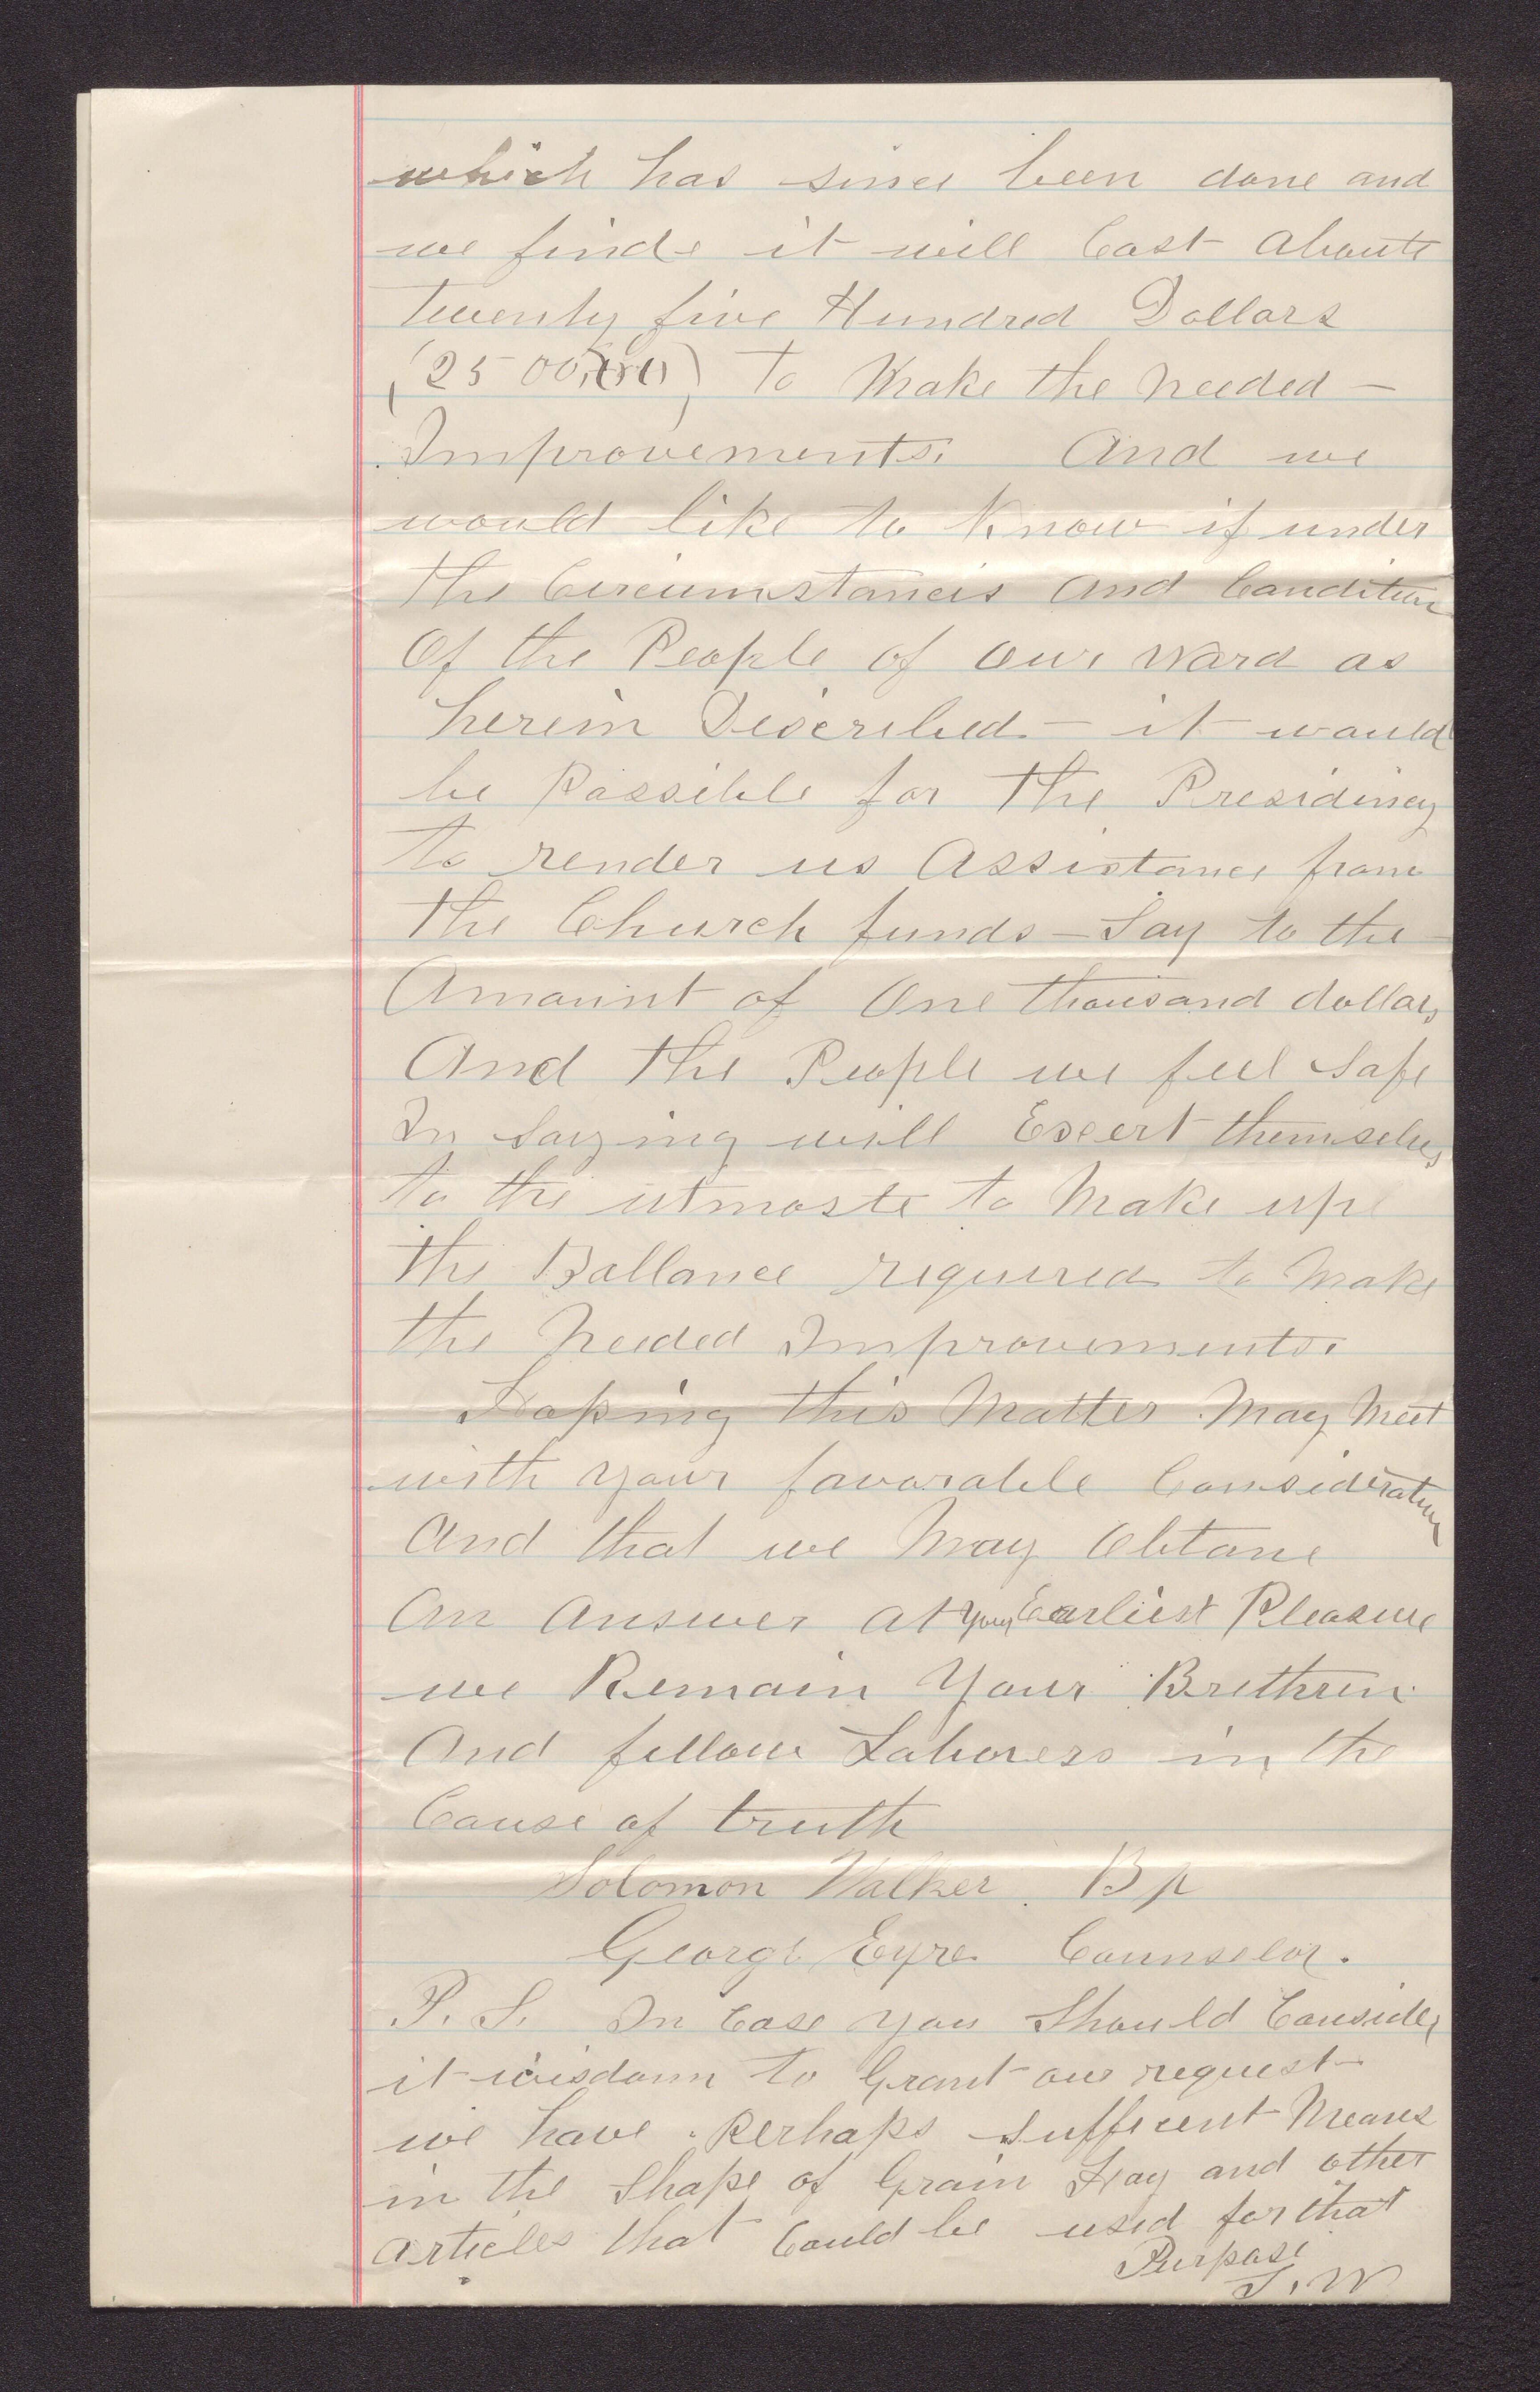 which has since been done and
we finde it will Cost aboute
twenty five Hundred Dollars
(2500,00) to Make the needed –
Improvements. And we
would like to Know if under
the Circumstancis and Condition
Of the People of our ward as
herein Discribed – it would
be Possible for the Presidincy
to render us Assistance from
the Church funds – Say to the –
Amount of One thousand dollars,
And the People we feel Safe
In Saying will Exert themselves
to the utmoste to Make up
the Ballance required to Make
the needed Improvements.
Hoping this Matter May Meet
with your favorable Consideration
And that we May Obtane
An answer at your Earliest Pleasure
we Remain Your Brethren
And fellow Laborers in the
Cause of truth
Solomon Walker. Bp
George Eyre Counselor.
P. S. In Case you Should Consider
it wisdom to Grant our request
we have Perhaps Sufficent Means
in the Shape of Grain Hay and other
articles that Could be used for that
Purpose
S. W